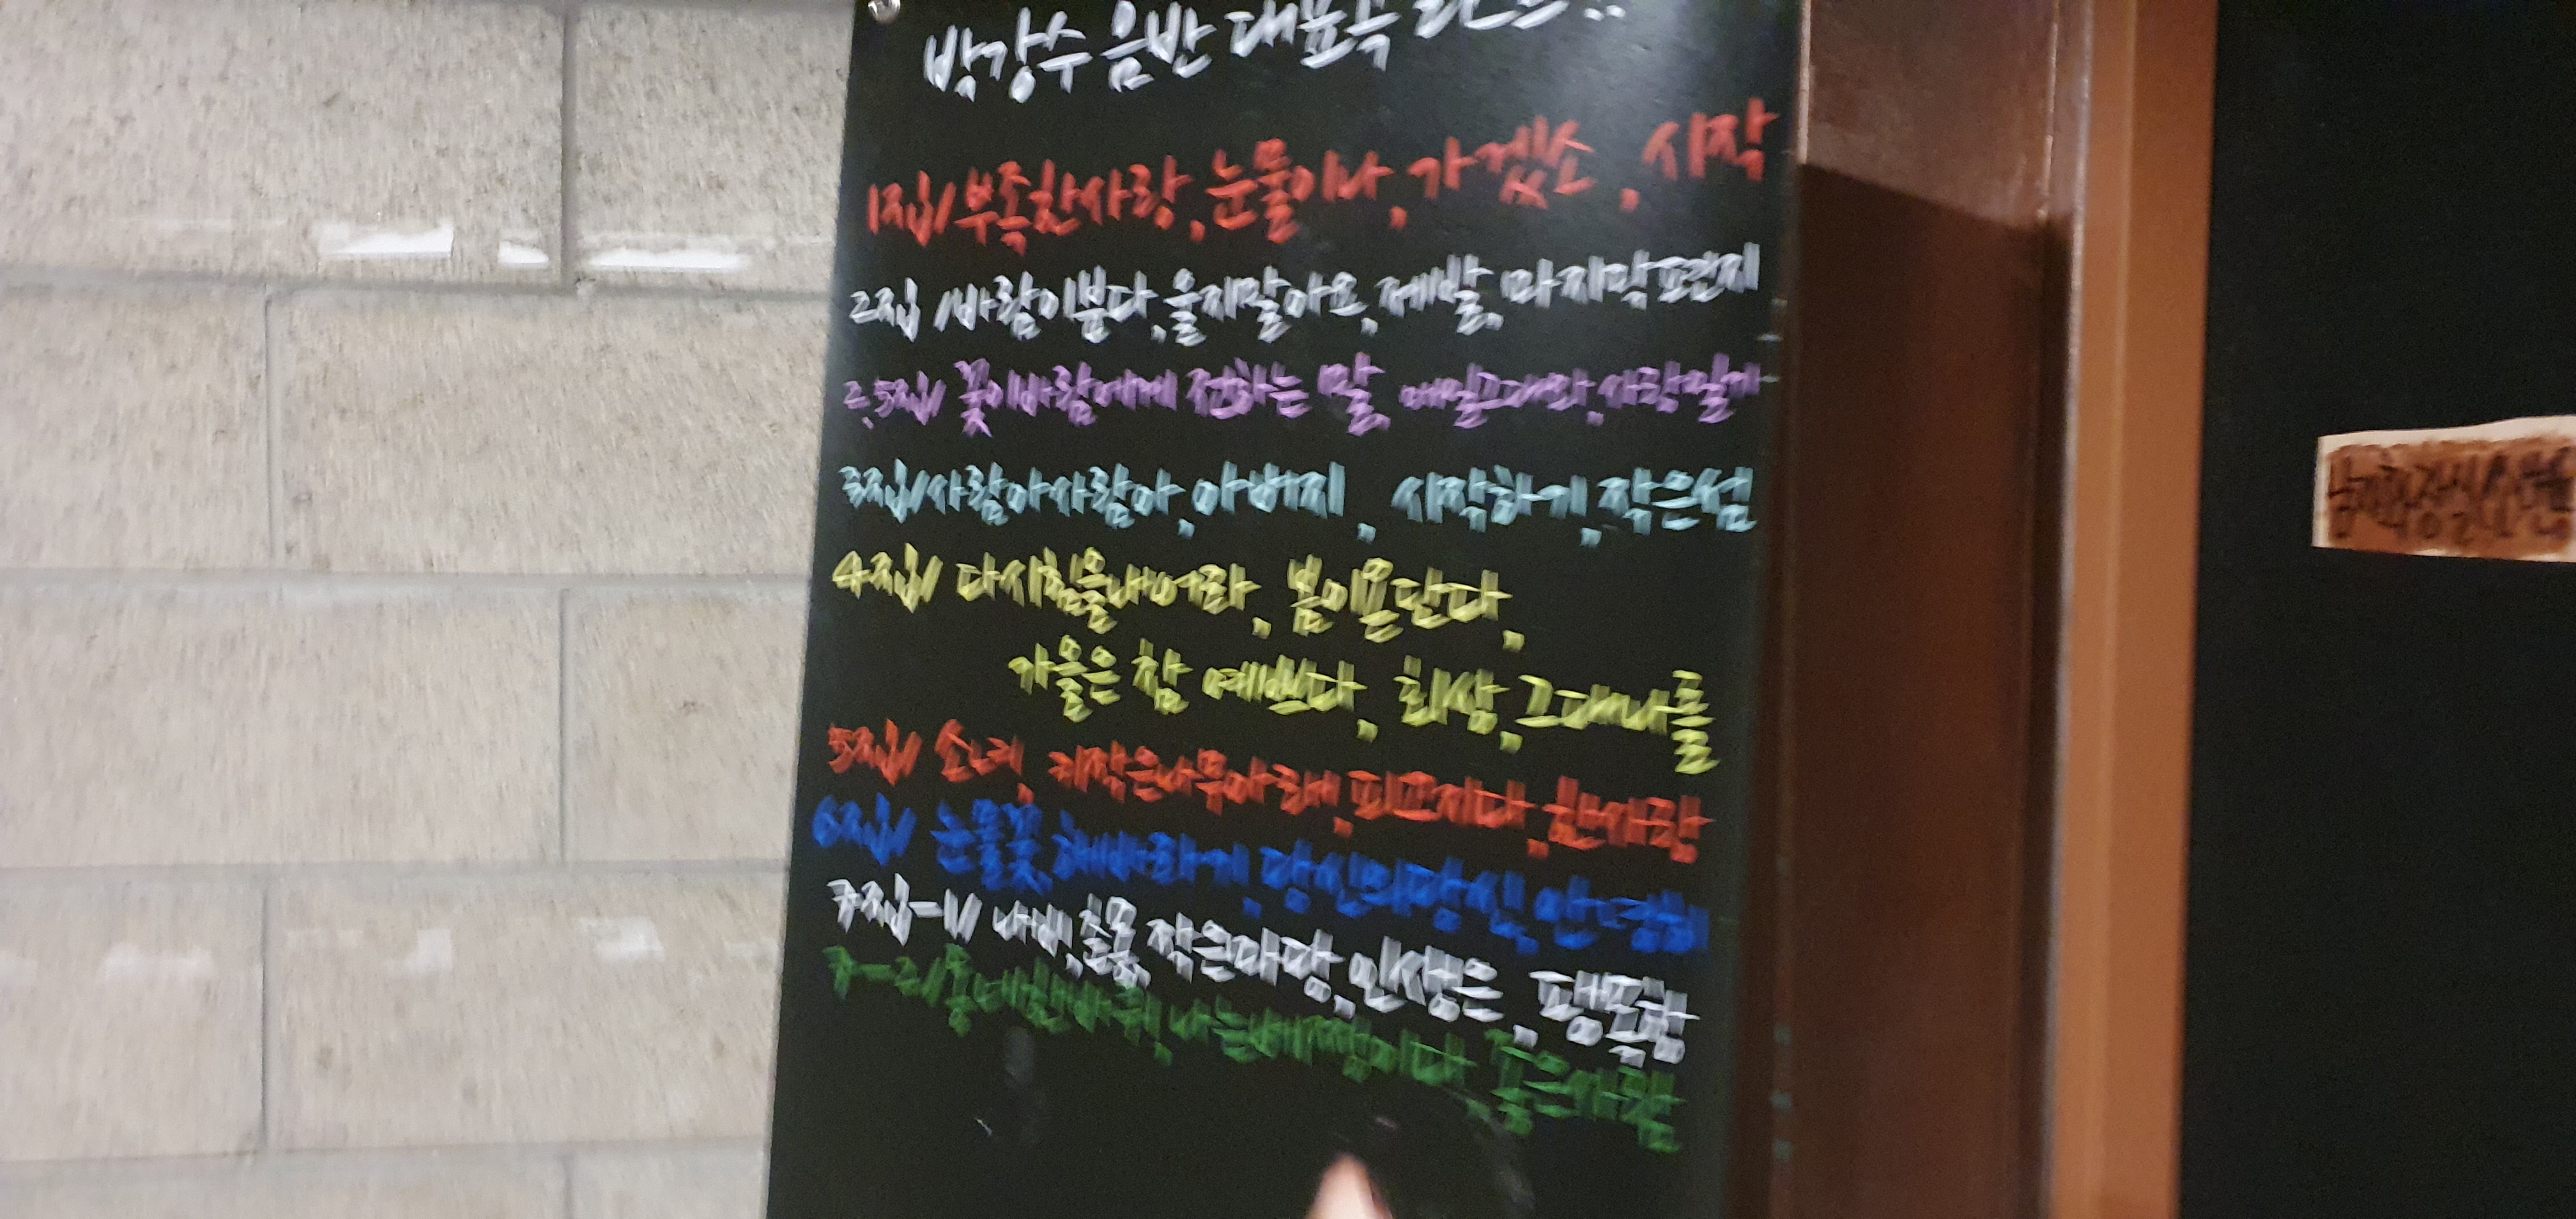 박강수 음반 대표곡 리스트..
1집/ 부족한사랑, 눈물이나, 가겠소, 시작
2집 /바람이분다, 울지말아요, 제발, 마지막편지
2.5집/ 꽃이바람에게 전하는 말, 매일그대와, 사랑할게
3집/사람아사람아, 아버지, 시작하기, 작은섬
4집/ 다시힘을내어라, 봄이온단다,
가을은 참 예쁘다, 회상, 그대나를
5집/ 소녀, 저작은나무아래, 피고지다, 한사람
6집/ 눈물꽃, 해바라기, 당신의당신, 안녕히
7집-1/ 나비, 춤꽃, 작은마당, 인생은,
7-2/ 동네한바퀴, 나는배짱이다 좋은사람